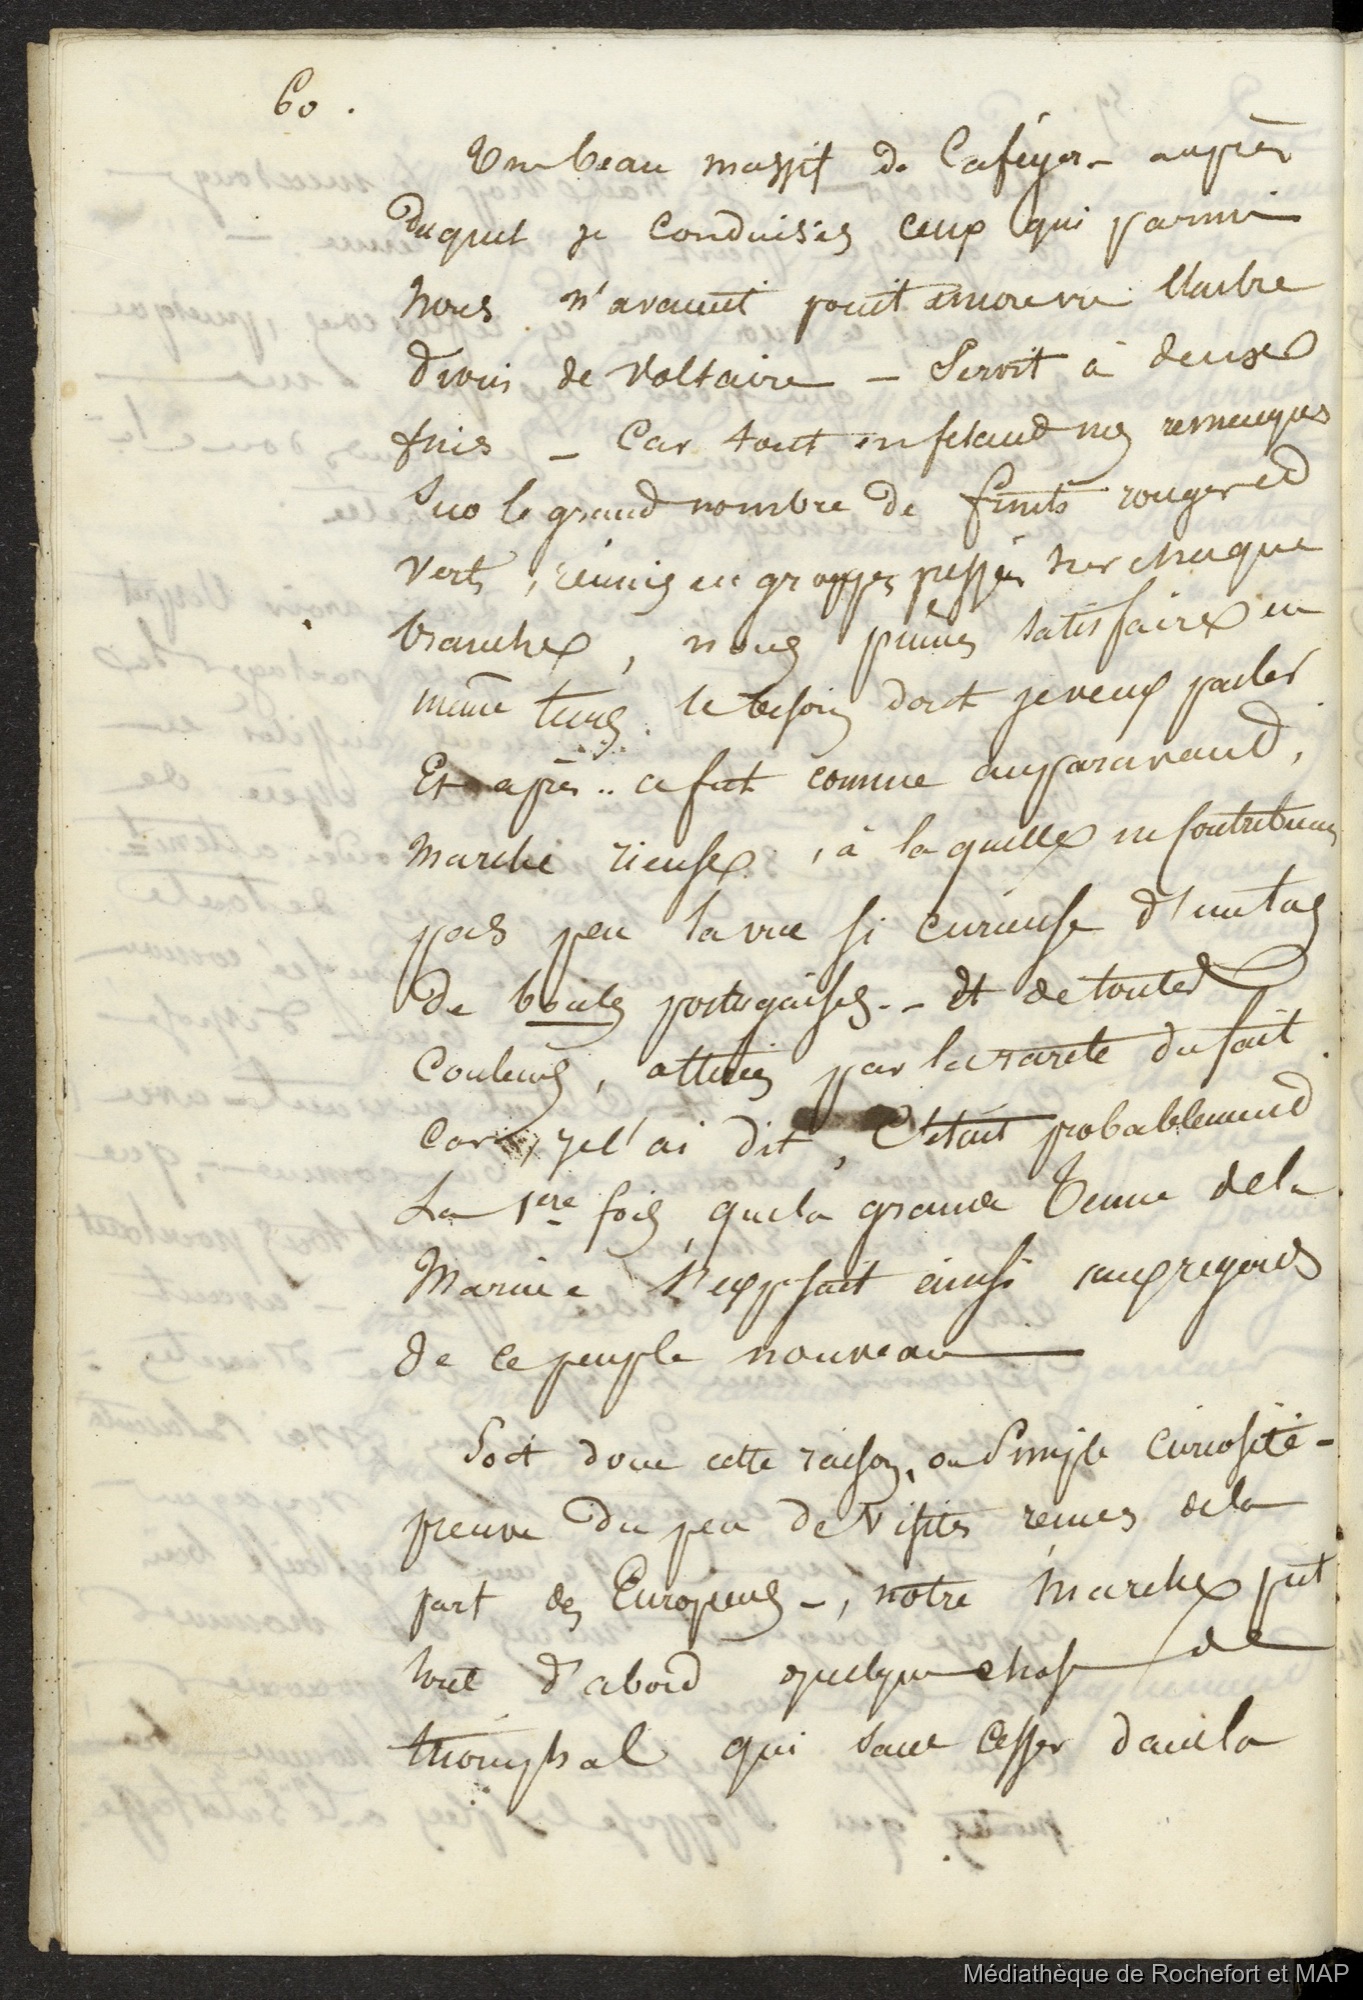 60.
Un beau massif de Cafeyer - auprès
duquel je conduisis ceux qui parmi
nous n'avaient point encore vu l'arbre
divin de Voltaire - Servit à deux
fins - Car tout en faisant mes remarques
Sur le grand nombre de fruits rouges et
Verts, réunis en grappes pressées sur chaque
branche, nous pûmes satisfaire en
même tems le besoin dont je veux parler
Et après .. ce fut comme auparavant,
Marche rieuse, à laquelle ne contribuait
pas peu la vue si curieuse d'un tas
de boules portugaises - Et de toutes
Couleurs, attirées par la rareté du fait
Car, je l'ai dit, C'était probablement
La 1ere fois, que la grande Tenue de la
Marine s'exposait ainsi aux regards
de ce peuple nouveau
Soit donc cette raison, ou Simple Curiosité -
preuve du peu de Visites reçues de la
part des Européens -, notre Marche prit
tout d'abord quelque chose de
triomphal qui sans cesser d'avoir la
Médiathèque de Rochefort et MAP